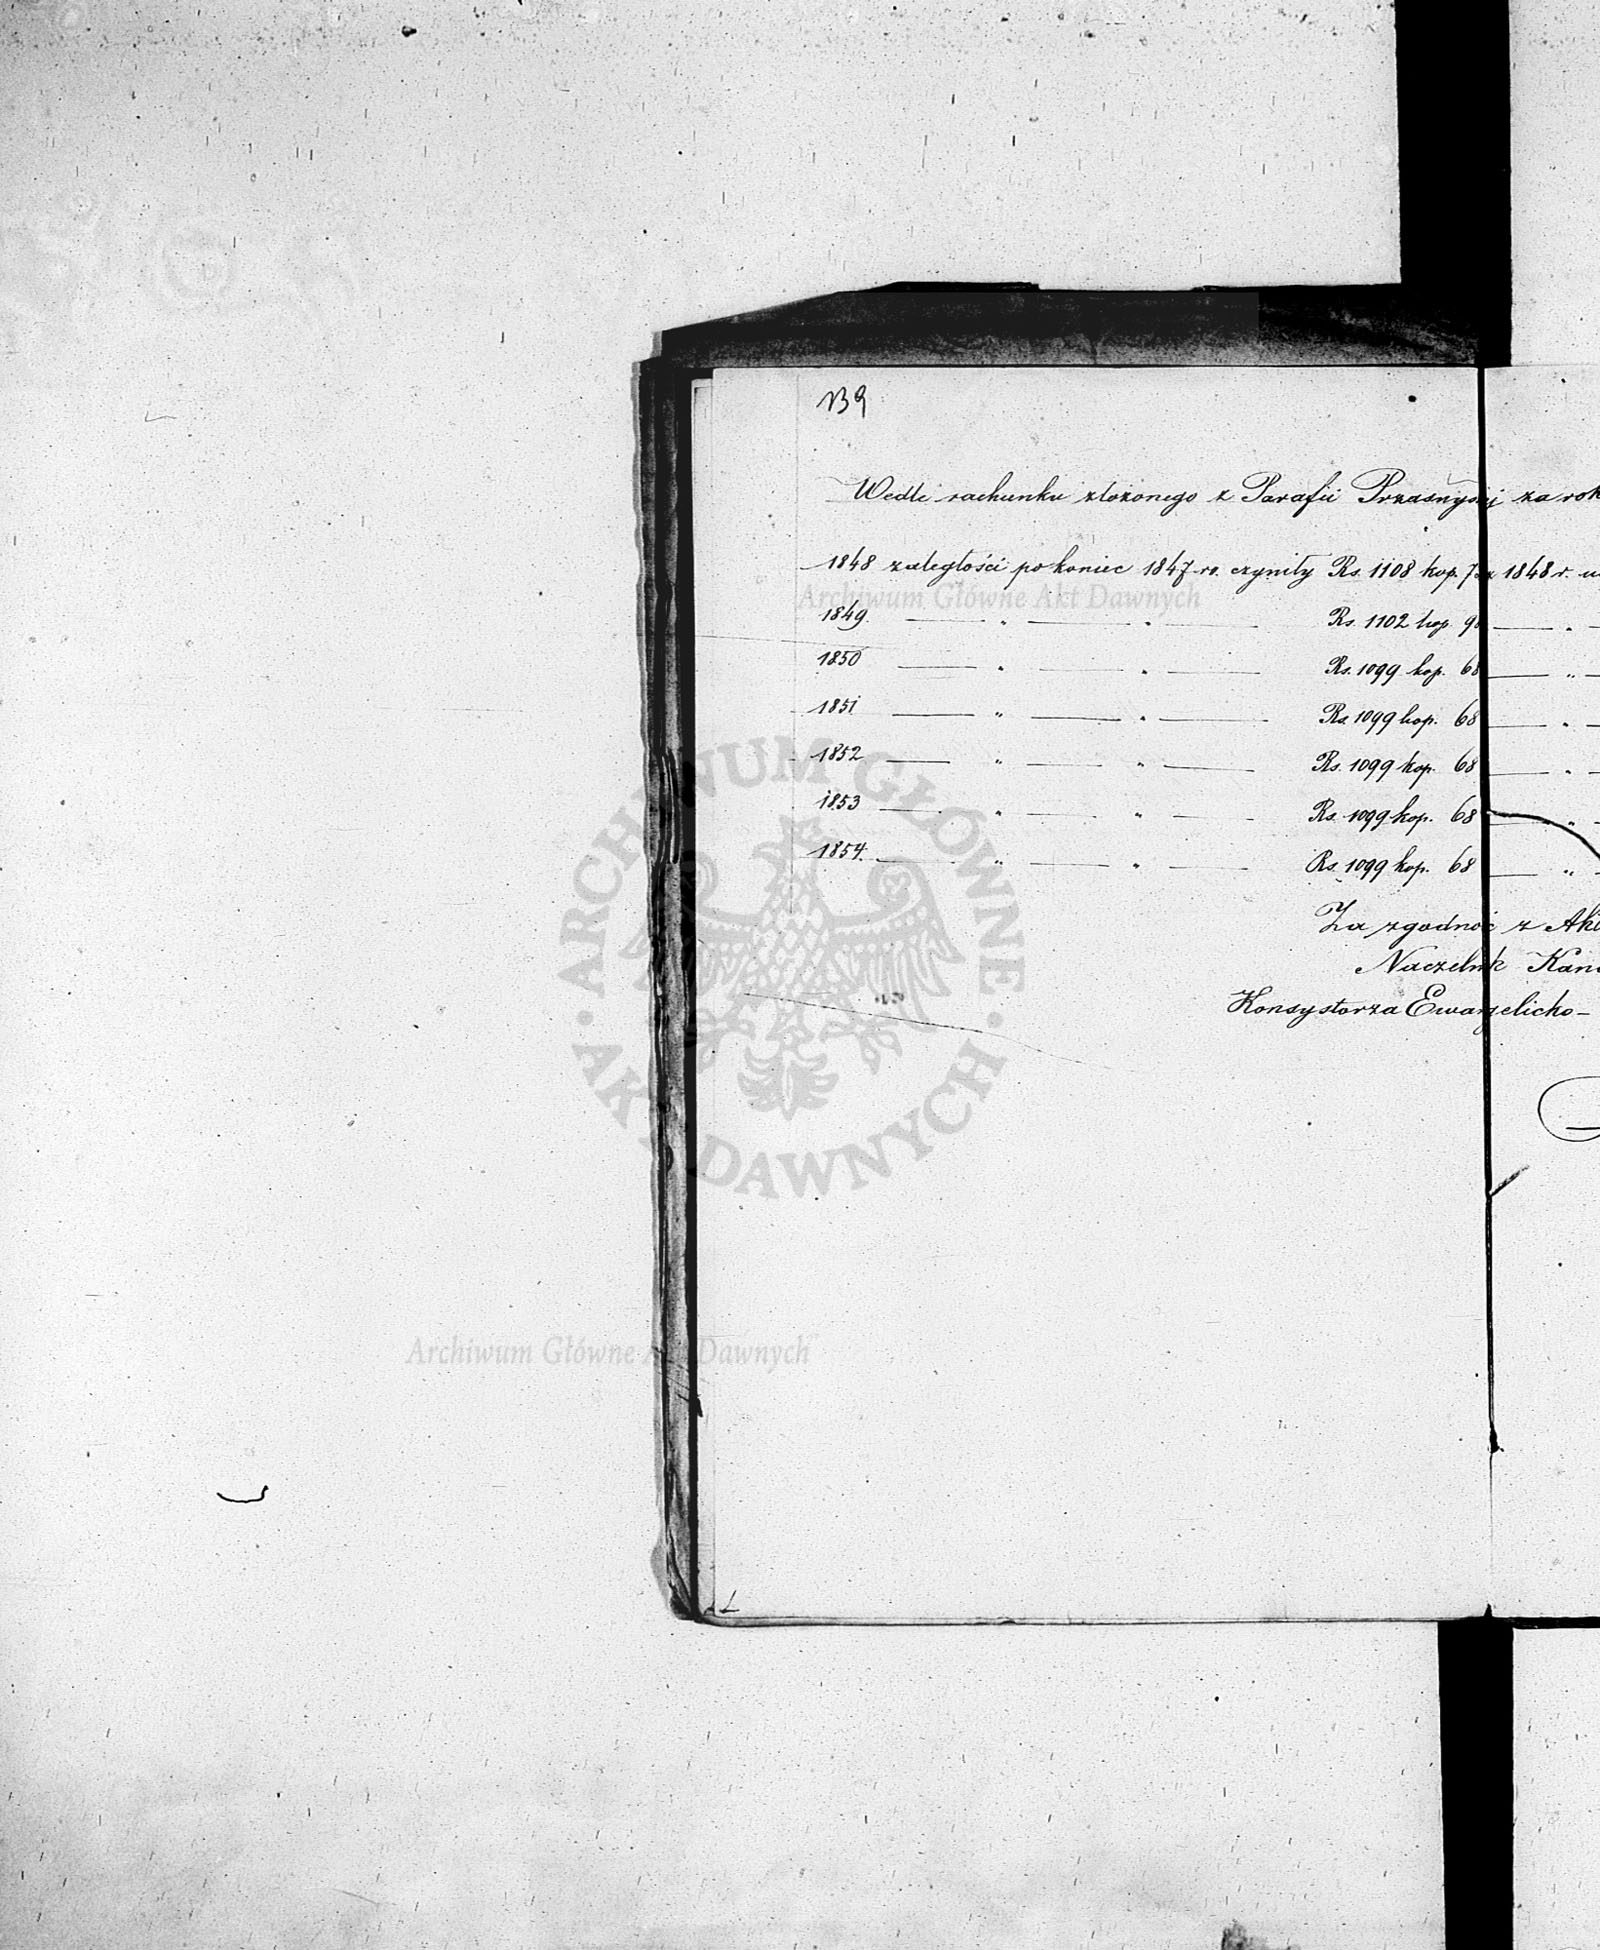 139
Wedle rachunku złożonego z Parafii Przasnyskij za rok
1848 zaległości po koniec 1847 ro. czyniły Rs. 1108 kop. 1848 r.
1849. — " — " — Rs. 1102 kop. 98 — " —
1850 — " — " — Rs. 1099 kop. 68 — " —
1851 — " — " — Rs. 1099 kop. 68 — " —
1852 — " — " — Rs. 1099 kop. 68 — " —
1853 — " — " — Rs. 1099 kop. 68 — " —
1854. — " — " — Rs. 1099 kop. 68 — " —
Za zgodność z
Naczelnik
Konsystorza Ewangelicko-
Archiwum Główne Akt Dawnych
ARCHIWUM GŁÓWNE · AKT DAWNYCH ·
Archiwum Główne Akt Dawnych